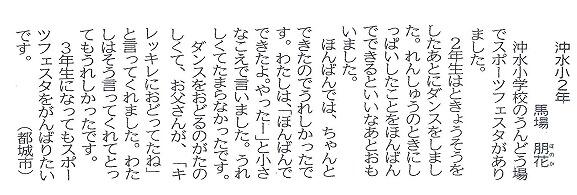 沖水小２年
馬場　朋花
ほのか
沖水小学校のうんどう場
でスポーツフェスタがあり
ました。
２年生はときょうそうを
したあとにダンスをしまし
た。れんしゅうのときにし
っぱいしたことをほんばん
でできるといいなあとおも
いました。
ほんばんでは、ちゃんと
できたのでうれしかったで
す。わたしは、「ほんばんで
できたよ。やったー」と小さ
なこえで言いました。うれ
しくてたまらなかったです。
ダンスをおどるのがたの
しくて、お父さんが、「キ
レッキレにおどってたね」
と言ってくれました。わた
しはそう言ってくれてとっ
てもうれしかったです。
３年生になってもスポー
ツフェスタをがんばりたい
です。（都城市）